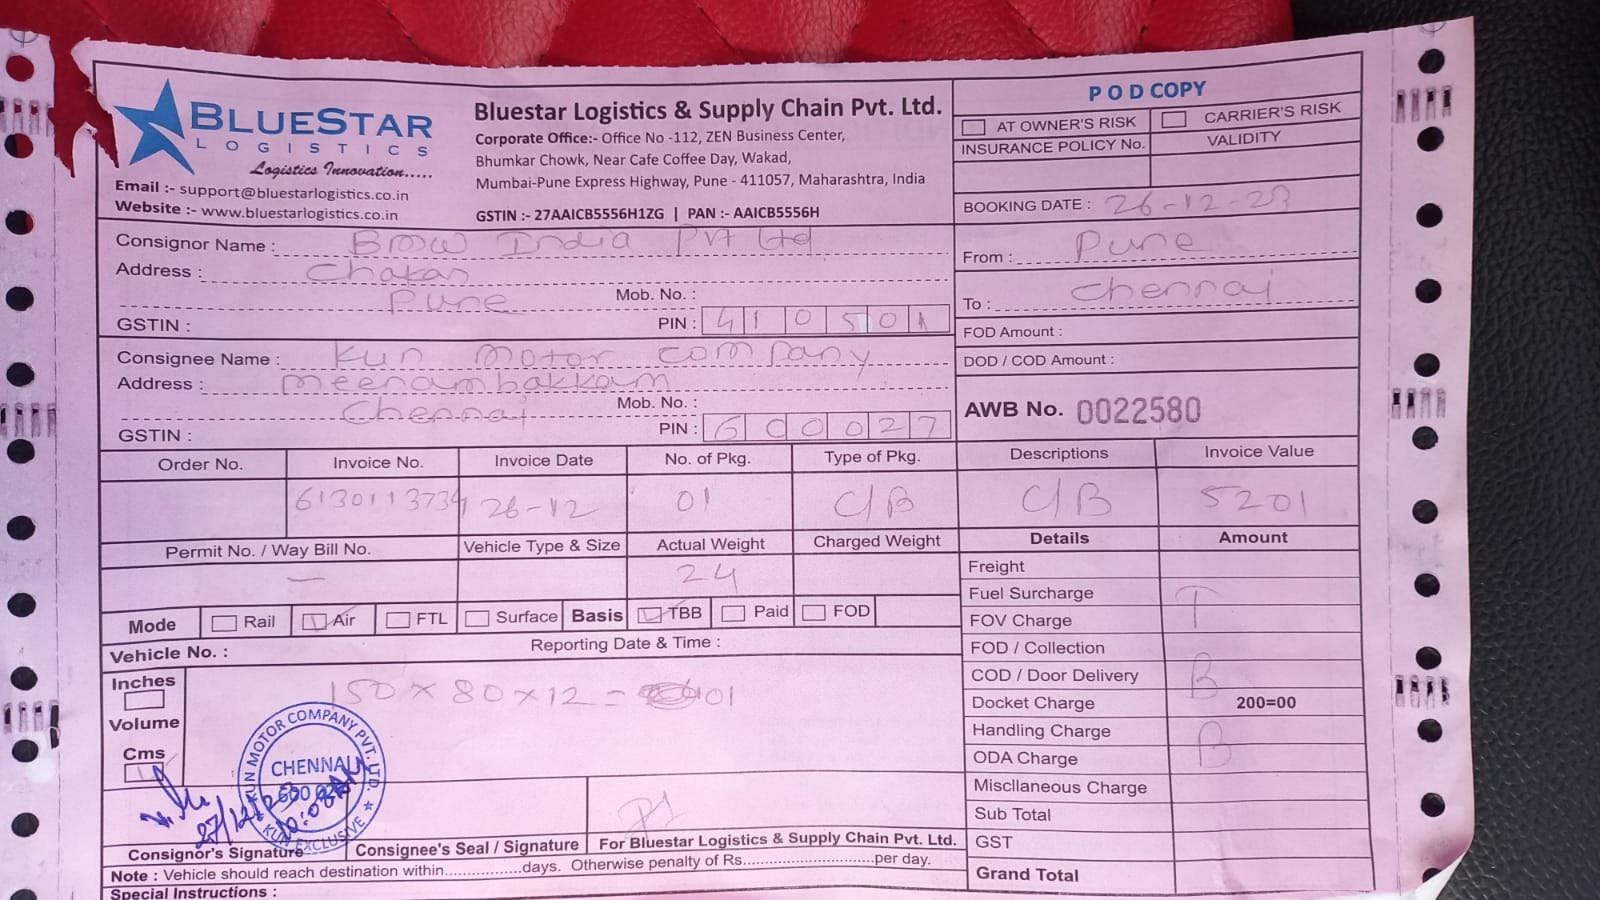 BLUESTAR
LOGISTICS
Logistics Innovation.....
Email :- support@bluestarlogistics.co.in
Website :- www.bluestarlogistics.co.in
Bluestar Logistics & Supply Chain Pvt. Ltd.
Corporate Office:- Office No -112, ZEN Business Center,
Bhumkar Chowk, Near Cafe Coffee Day, Wakad,
Mumbai-Pune Express Highway, Pune - 411057, Maharashtra, India
GSTIN :- 27AAICB5556H1ZG | PAN :- AAICB5556H
POD COPY
AT OWNER'S RISK CARRIER'S RISK
INSURANCE POLICY No. VALIDITY
BOOKING DATE : 26-12-23
Consignor Name : BMW India Pvt Ltd
Address : Chakan
Pune Mob. No. :
GSTIN : PIN : 410501
From : Pune
To : Chennai
FOD Amount :
DOD / COD Amount :
Consignee Name : Kun Motor Company
Address : Meenambakkam
Chennai Mob. No. :
GSTIN : PIN : 600027
AWB No. 0022580
Order No. Invoice No. Invoice Date No. of Pkg. Type of Pkg. Descriptions Invoice Value
6130113734 26-12 01 C/B C/B 5201
Permit No. / Way Bill No. Vehicle Type & Size Actual Weight Charged Weight Details Amount
— 24
Mode Rail Air FTL Surface Basis TBB Paid FOD
Vehicle No. : Reporting Date & Time :
Inches
Volume
Cms
150 x 80 x 12 = 01
Freight
Fuel Surcharge T
FOV Charge
FOD / Collection
COD / Door Delivery B
Docket Charge 200=00
Handling Charge B
ODA Charge
Miscllaneous Charge
Sub Total
GST
Grand Total
KUN MOTOR COMPANY PVT. LTD.
CHENNAI
KUN EXCLUSIVE
Consignor's Signature Consignee's Seal / Signature For Bluestar Logistics & Supply Chain Pvt. Ltd.
Note : Vehicle should reach destination within.................days. Otherwise penalty of Rs.............................per day.
Special Instructions :